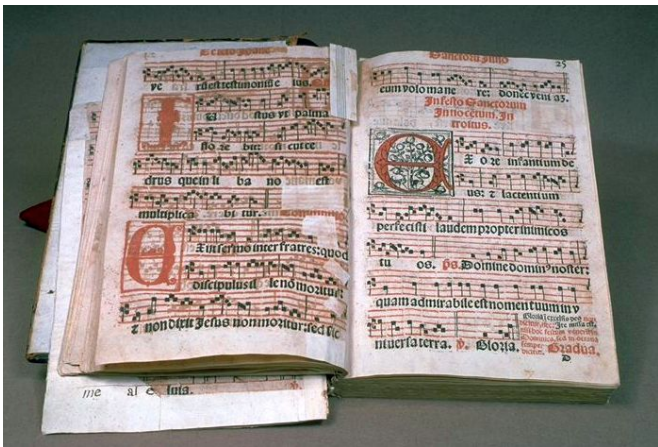 ve rū est testimoniū e ius.
I
stus vt palma
flo re bit: si cut ce
drus que in li ba no est
multiplica bi tur.
E
Xiit sermo inter fratres: quod
discipulus il le nō moritur:
z non dixit Jesus non moritur: sed sic
me al e luia.
Sanctorū Juno
25
eum volo mane re: donec veni az.
In festo Sanctorum
Innocētum. In
troitus.
E
X o re infantium de
us: z lactentium
perfecisti laudem propter inimicos
tu os. ps. Domine domin⁹ noster:
quam admirabile est nomen tuum in v
niuersa terra. Gloria.
Gradūa.